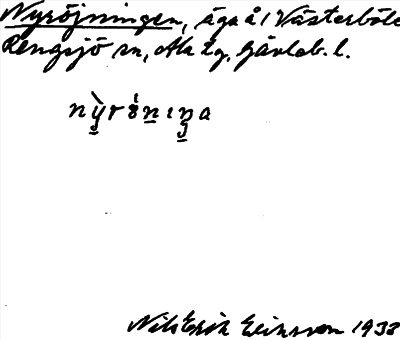 Nyröjningen, äga å 1 Västerböle
Rengsjö sn, Ala tg, Gävleb. l.
Nils Erik Eriksson 1933